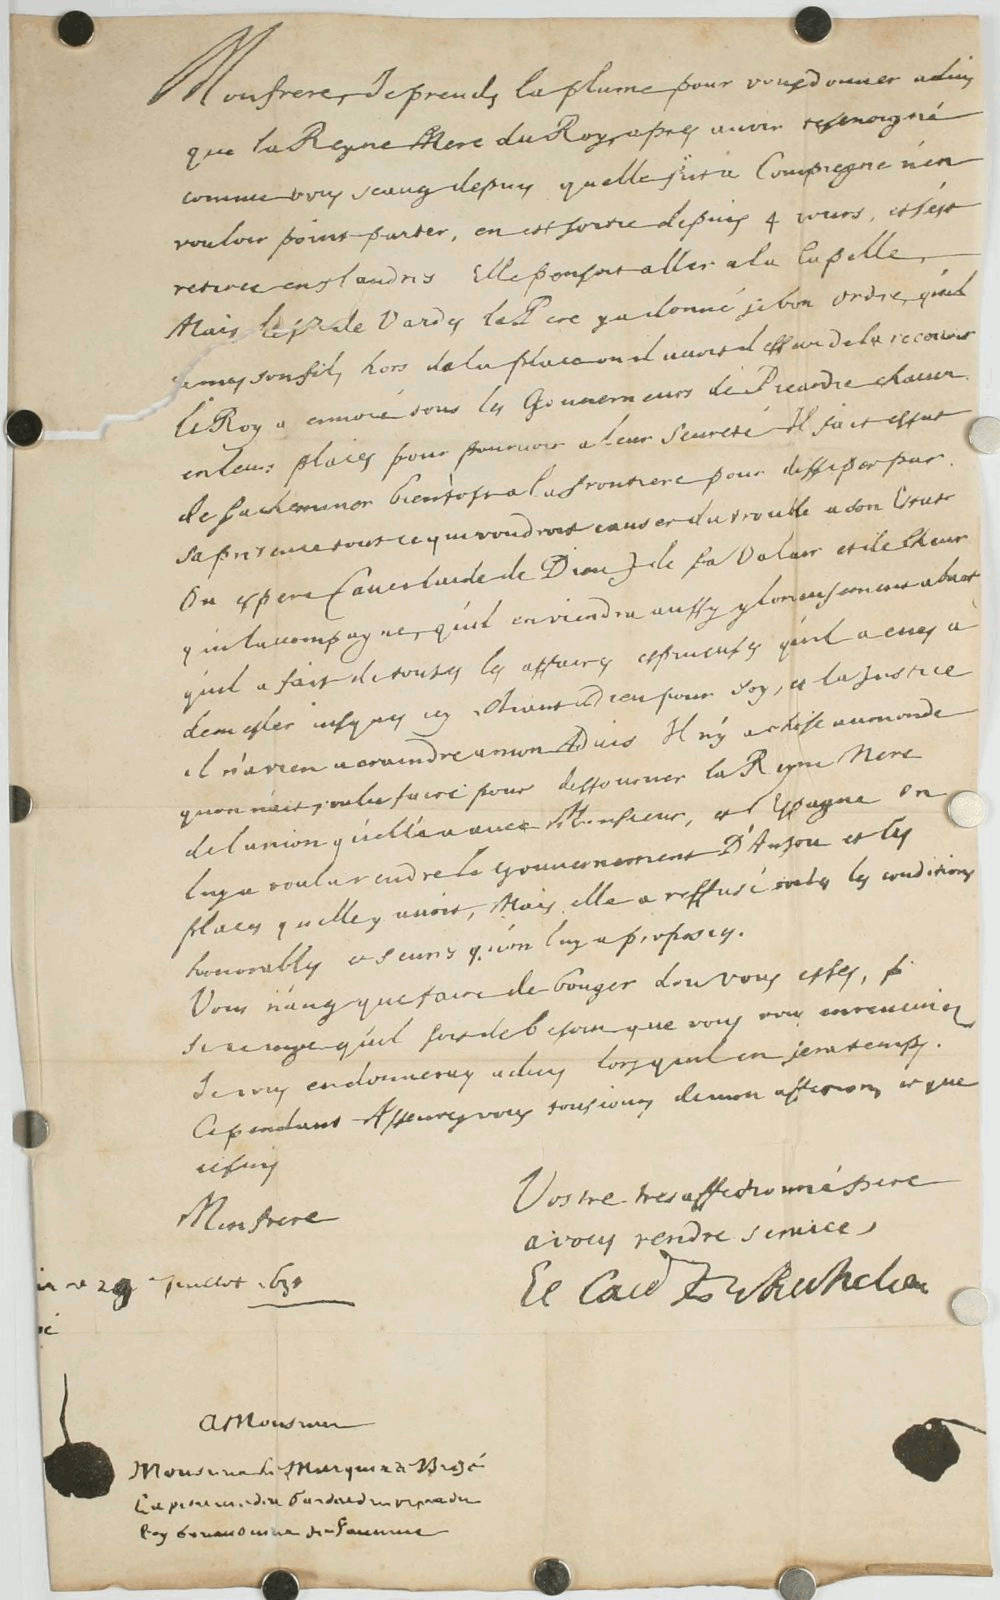 Mon frere, Je prends la plume pour vous donner advis
que la Reyne Mere du Roy, apres avoir tesmoigné
comme vous scavez depuis quelle fut a Compiegne n'en
vouloir point partir, en est sortie depuis 4 iours, et s'est
retiree en flandres Elle pensoit aller a la Capelle,
Mais le Sr de Vardes le Pere y a donné si bon ordre, qu'il
a mis son fils hors de la place ou il avoit dessein de la recevoir
le Roy a envoié tous les Gouverneurs de Picardie chacun
en leurs places pour pourvoir a leur seureté Il fait estat
de s'acheminer bientost a la frontiere pour dissiper par
sa presence tout ce qui voudroit causer du trouble a son Estat
On espere (avec l'aide de Dieu) de sa Valeur et de l'heur
qui l'accompagne, qu'il en viendra aussy glorieusement a bout
qu'il a fait de toutes les affaires espineuses qu'il a eues à
demesler iusques icy Aiant Dieu pour soy, et la Justice
il n'a rien a craindre a mon Advis Il n'y a chose au monde
qu'on n'ait voulu faire pour destourner la Reyne Mere
de l'union qu'elle a avec Monsieur, et l'Espagne On
luy a voulu rendre le gouvernement D'Anjou et les
places quelle y avoit, Mais elle a reffusé toutes les conditions
honorables et seures qu'on luy a proposees.
Vous n'avez que faire de bouger d'ou vous estes,
qu'il soit de besoin que vous vous en reveniez
Je vous en donneray advis lorsqu'il en sera temps.
Cependant Asseurez vous tousiours de mon affection, et que
ie suis
Mon frere
Vostre tres affectionné frere
a vous rendre service
Le Card de Richelieu
29 Juillet 1631
A Monsieur
Monsieur le Marquis de Brezé
Capitaine des Gardes du corps du
Roy Gouverneur de Saumur